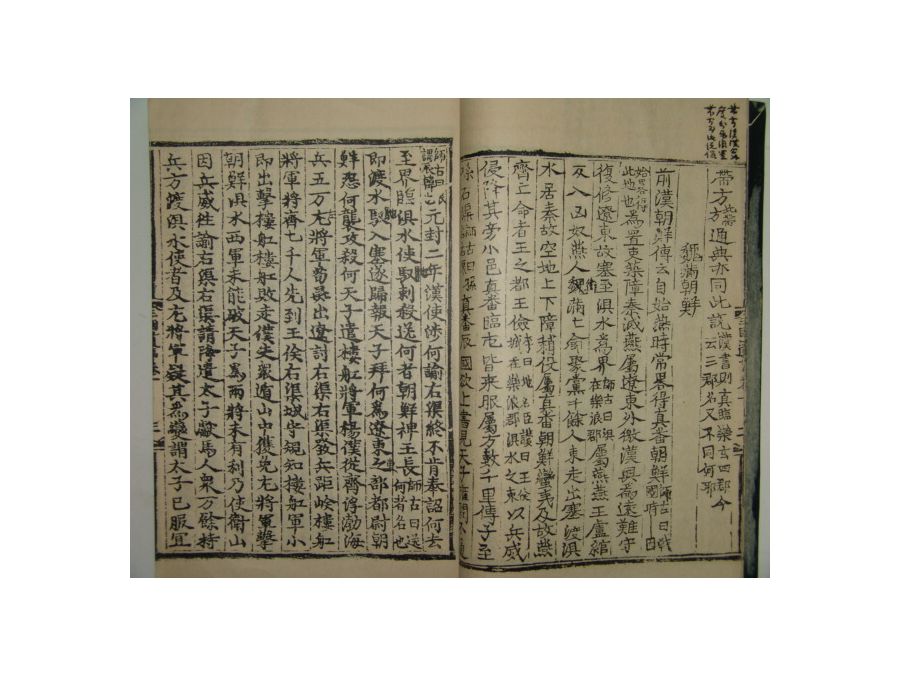 帶方北帶方通典亦同此說漢書則真臨樂玄四郡今云三郡名又不同何耶
魏滿朝鮮
前漢朝鮮傳云自始燕時常畧得真番朝鮮師古曰戰國時
始畧得此地也為置吏築障秦滅燕屬遼東外徼漢興為遠難守
復修遼東故塞至浿水為界師古曰浿在樂浪郡屬燕燕王盧綰
反入凶奴燕人魏滿亡命聚黨千餘人東走出塞渡浿
水居秦故空地上下障稍役屬真番朝鮮蠻夷及故燕
齊亡命者王之都王儉李曰地名臣讚曰王儉城在樂浪郡浿水之東以兵威
侵降其旁小邑真番臨屯皆來服屬方數千里傳子至
孫右渠師古曰孫真番辰國欲上書見天子雍閼不通
師古曰辰謂辰韓也元封二年漢使涉何諭右渠終不肯奉詔何去
至界臨浿水使馭刺殺送何者朝鮮裨王長師古曰送何者名也
即渡水馭入塞遂歸報天子拜何為遼東之部都尉朝
鮮怨何襲攻殺何天子遣樓舡將軍楊僕從齊浮渤海
兵五万左將軍荀彘出遼討右渠右渠發兵距嶮樓舡
將軍將齊七千人先到王儉右渠城守規知樓舡軍小
即出擊樓舡樓舡敗走僕失衆遁山中獲免左將軍擊
朝鮮浿水西軍未能破天子為兩將未有利乃使衛山
因兵威往諭右渠右渠請降遣太子獻馬人衆万餘持
兵方渡浿水使者及左將軍疑其為變謂太子已服宜